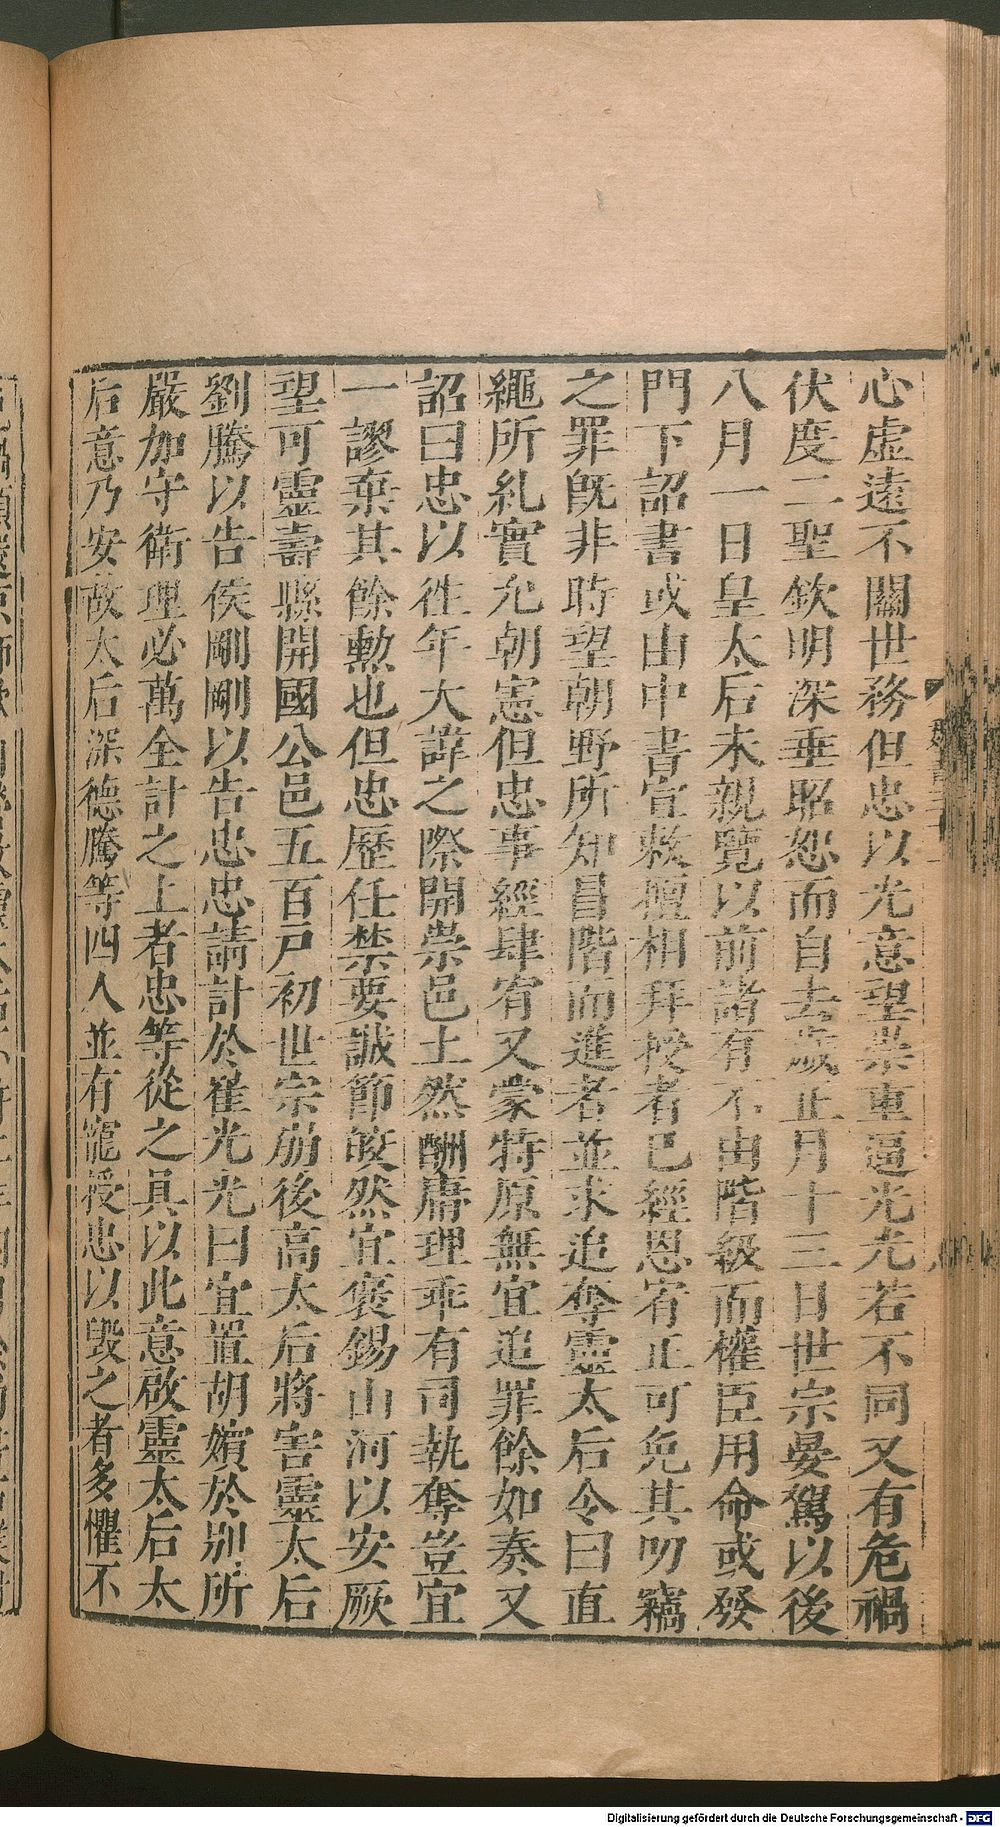 心虚遠不關世務但忠以光意望崇重逼光光若不同又有危禍
伏度二聖欽明深垂昭恕而自去歲正月十三日世宗晏駕以後
八月一日皇太后未親覽以前諸有不由階級而權臣用命或發
門下詔書或由中書宣敕擅相拜授者已經恩宥正可免其叨竊
之罪既非時望朝野所知昌階而進者並求追奪靈太后令曰直
繩所糺實允朝憲但忠事經肆宥又蒙特原無宜追罪餘如奏又
詔曰忠以徃年大諱之際開崇邑土然酬庸理乖有司執奪豈宜
一謬棄其餘勲也但忠歷任禁要誠節皎然宜褒錫山河以安厥
望可靈壽縣開國公邑五百戸初世宗崩後高太后將害靈太后
劉騰以告侯剛剛以告忠忠請計於崔光光曰宜置胡嬪於別所
嚴加守衛理必萬全計之上者忠等從之具以此意啟靈太后太
后意乃安故太后深德騰等四人並有寵授忠以毀之者多懼不
Digitalisierung gefördert durch die Deutsche Forschungsgemeinschaft - DFG